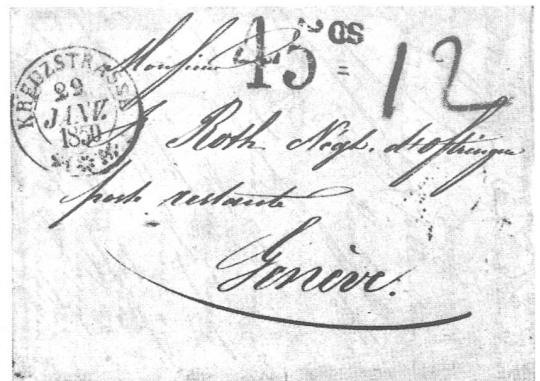 KREUZSTRASSE
29
JANZ
1850
45 cos
= 12
Monsieur
J Roth Négt. d'Oftringen
poste restante
Genève.